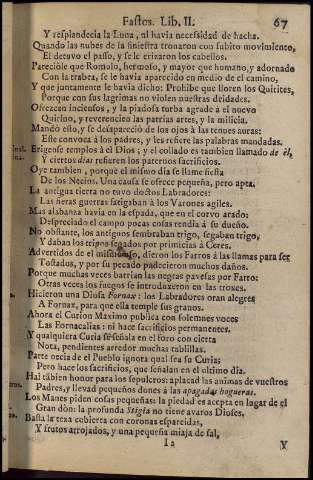 Fastos. Lib. II. 67
Y resplandecia la Luna, ni havia necessidad de hacha.
Quando las nubes de la siniestra tronaron con subito movimiento,
El detuvo el passo, y se le erizaron los cabellos.
Pareciòle que Romolo, hermoso, y mayor que humano, y adornado
Con la trabea, se le havia aparecido en medio de el camino,
Y que juntamente le havia dicho: Prohibe que lloren los Quirites,
Porque con sus lagrimas no violen nuestras deidades.
Ofrezcan inciensos, y la piadosa turba agrade à el nuevo
Quirino, y reverencien las patrias artes, y la milicia.
Mandò esto, y se desapareciò de los ojos à las tenues auras:
Este convoca à los padres, y les refiere las palabras mandadas.
Erigense templos à el Dios; y el collado es tambien llamado de èl,
Y ciertos dias refieren los paternos sacrificios.
Oye tambien, porque el mismo dia se llame fiesta
De los Necios. Una causa se ofrece pequeña, pero apta.
La antigua tierra no tuvo doctos Labradores:
Las fieras guerras fatigaban à los Varones agiles.
Mas alabanza havia en la espada, que en el corvo arado:
Despreciado el campo pocas cosas rendia à su dueño.
No obstante, los antiguos sembraban trigo, segaban trigo,
Y daban los trigos segados por primicias à Ceres.
Advertidos de el mismo uso, dieron los Farros à las llamas para ser
Tostados, y por su pecado padecieron muchos daños.
Porque muchas veces barrian las negras pavesas por Farro:
Otras veces los fuegos se introduxeron en las troxes.
Hicieron una Diosa Fornax: los Labradores oran alegres
A Fornax, para que ella temple sus granos.
Ahora el Curion Maximo publica con solemnes voces
Las Fornacalias: ni hace sacrificios permanentes.
Y qualquiera Curia se señala en el foro con cierta
Nota, pendientes arredor muchas tablillas.
Parte necia de el Pueblo ignora qual sea su Curia;
Pero hace los sacrificios, que señalan en el ultimo dia.
Hai tàbien honor para los sepulcros: aplacad las animas de vuestros
Padres, y llevad pequeños dones à las apagadas hogueras.
Los Manes piden cosas pequeñas: la piedad es acepta en lugar de el
Gran dòn: la profunda Stigia no tiene avaros Dioses,
Basta la texa cubierta con coronas esparcidas,
Y frutos arrojados, y una pequeña miaja de sal,
I2 Y